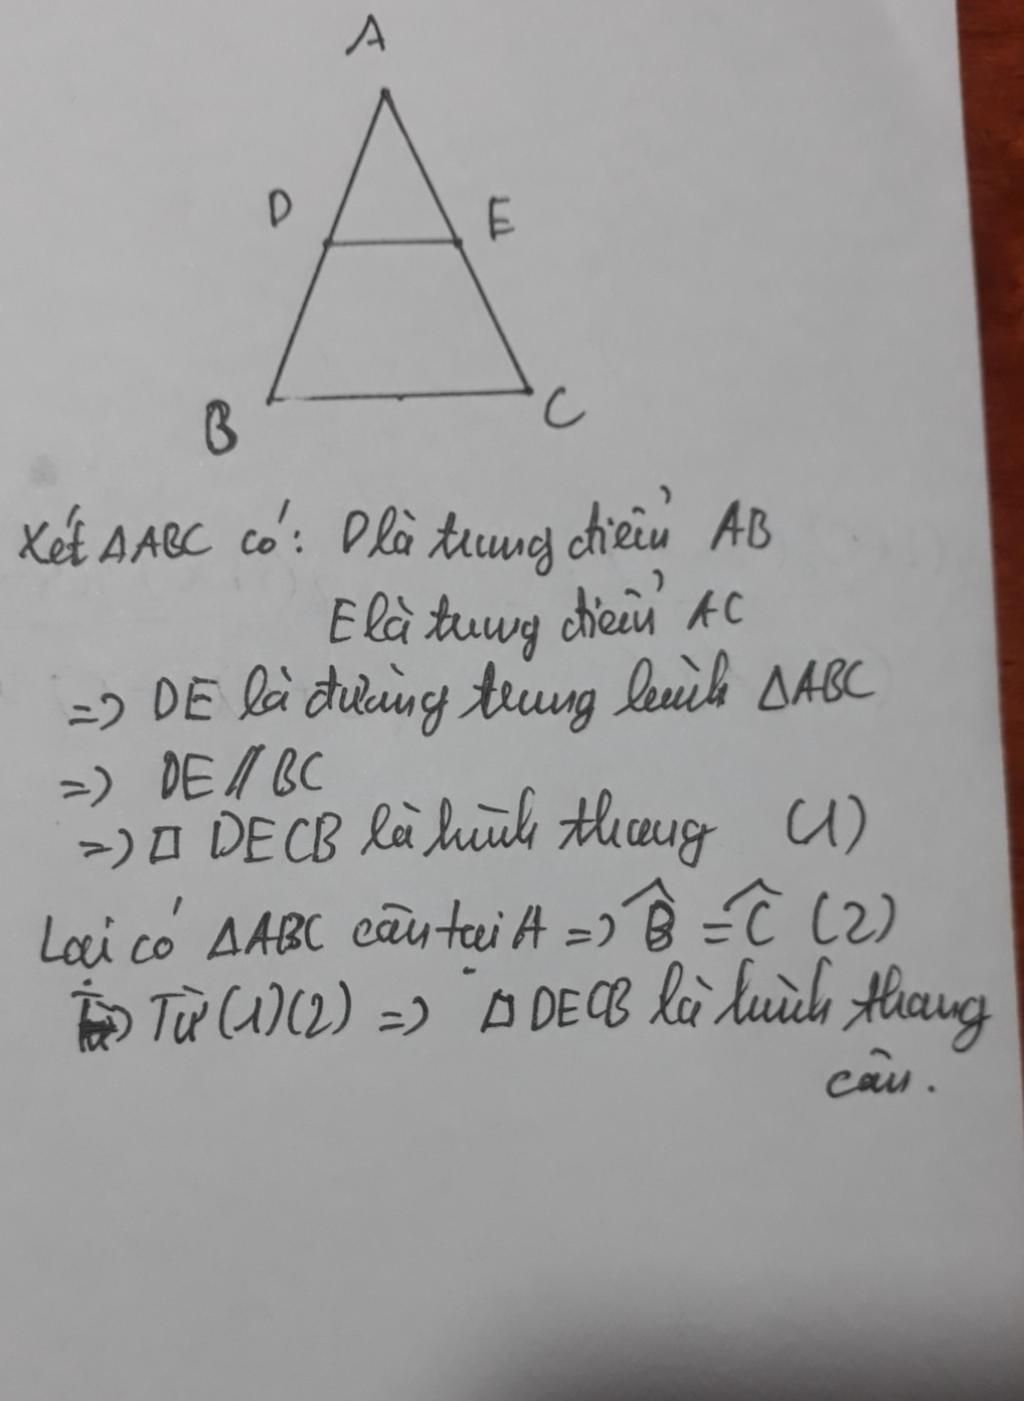 A
D
E
B
C
Xét ΔABC có: D là trung điểm AB
E là trung điểm AC
=> DE là đường trung bình ΔABC
=> DE // BC
=> □ DECB là hình thang (1)
Lại có ΔABC cân tại A => B̂ = Ĉ (2)
Từ (1)(2) => □ DECB là hình thang
cân.